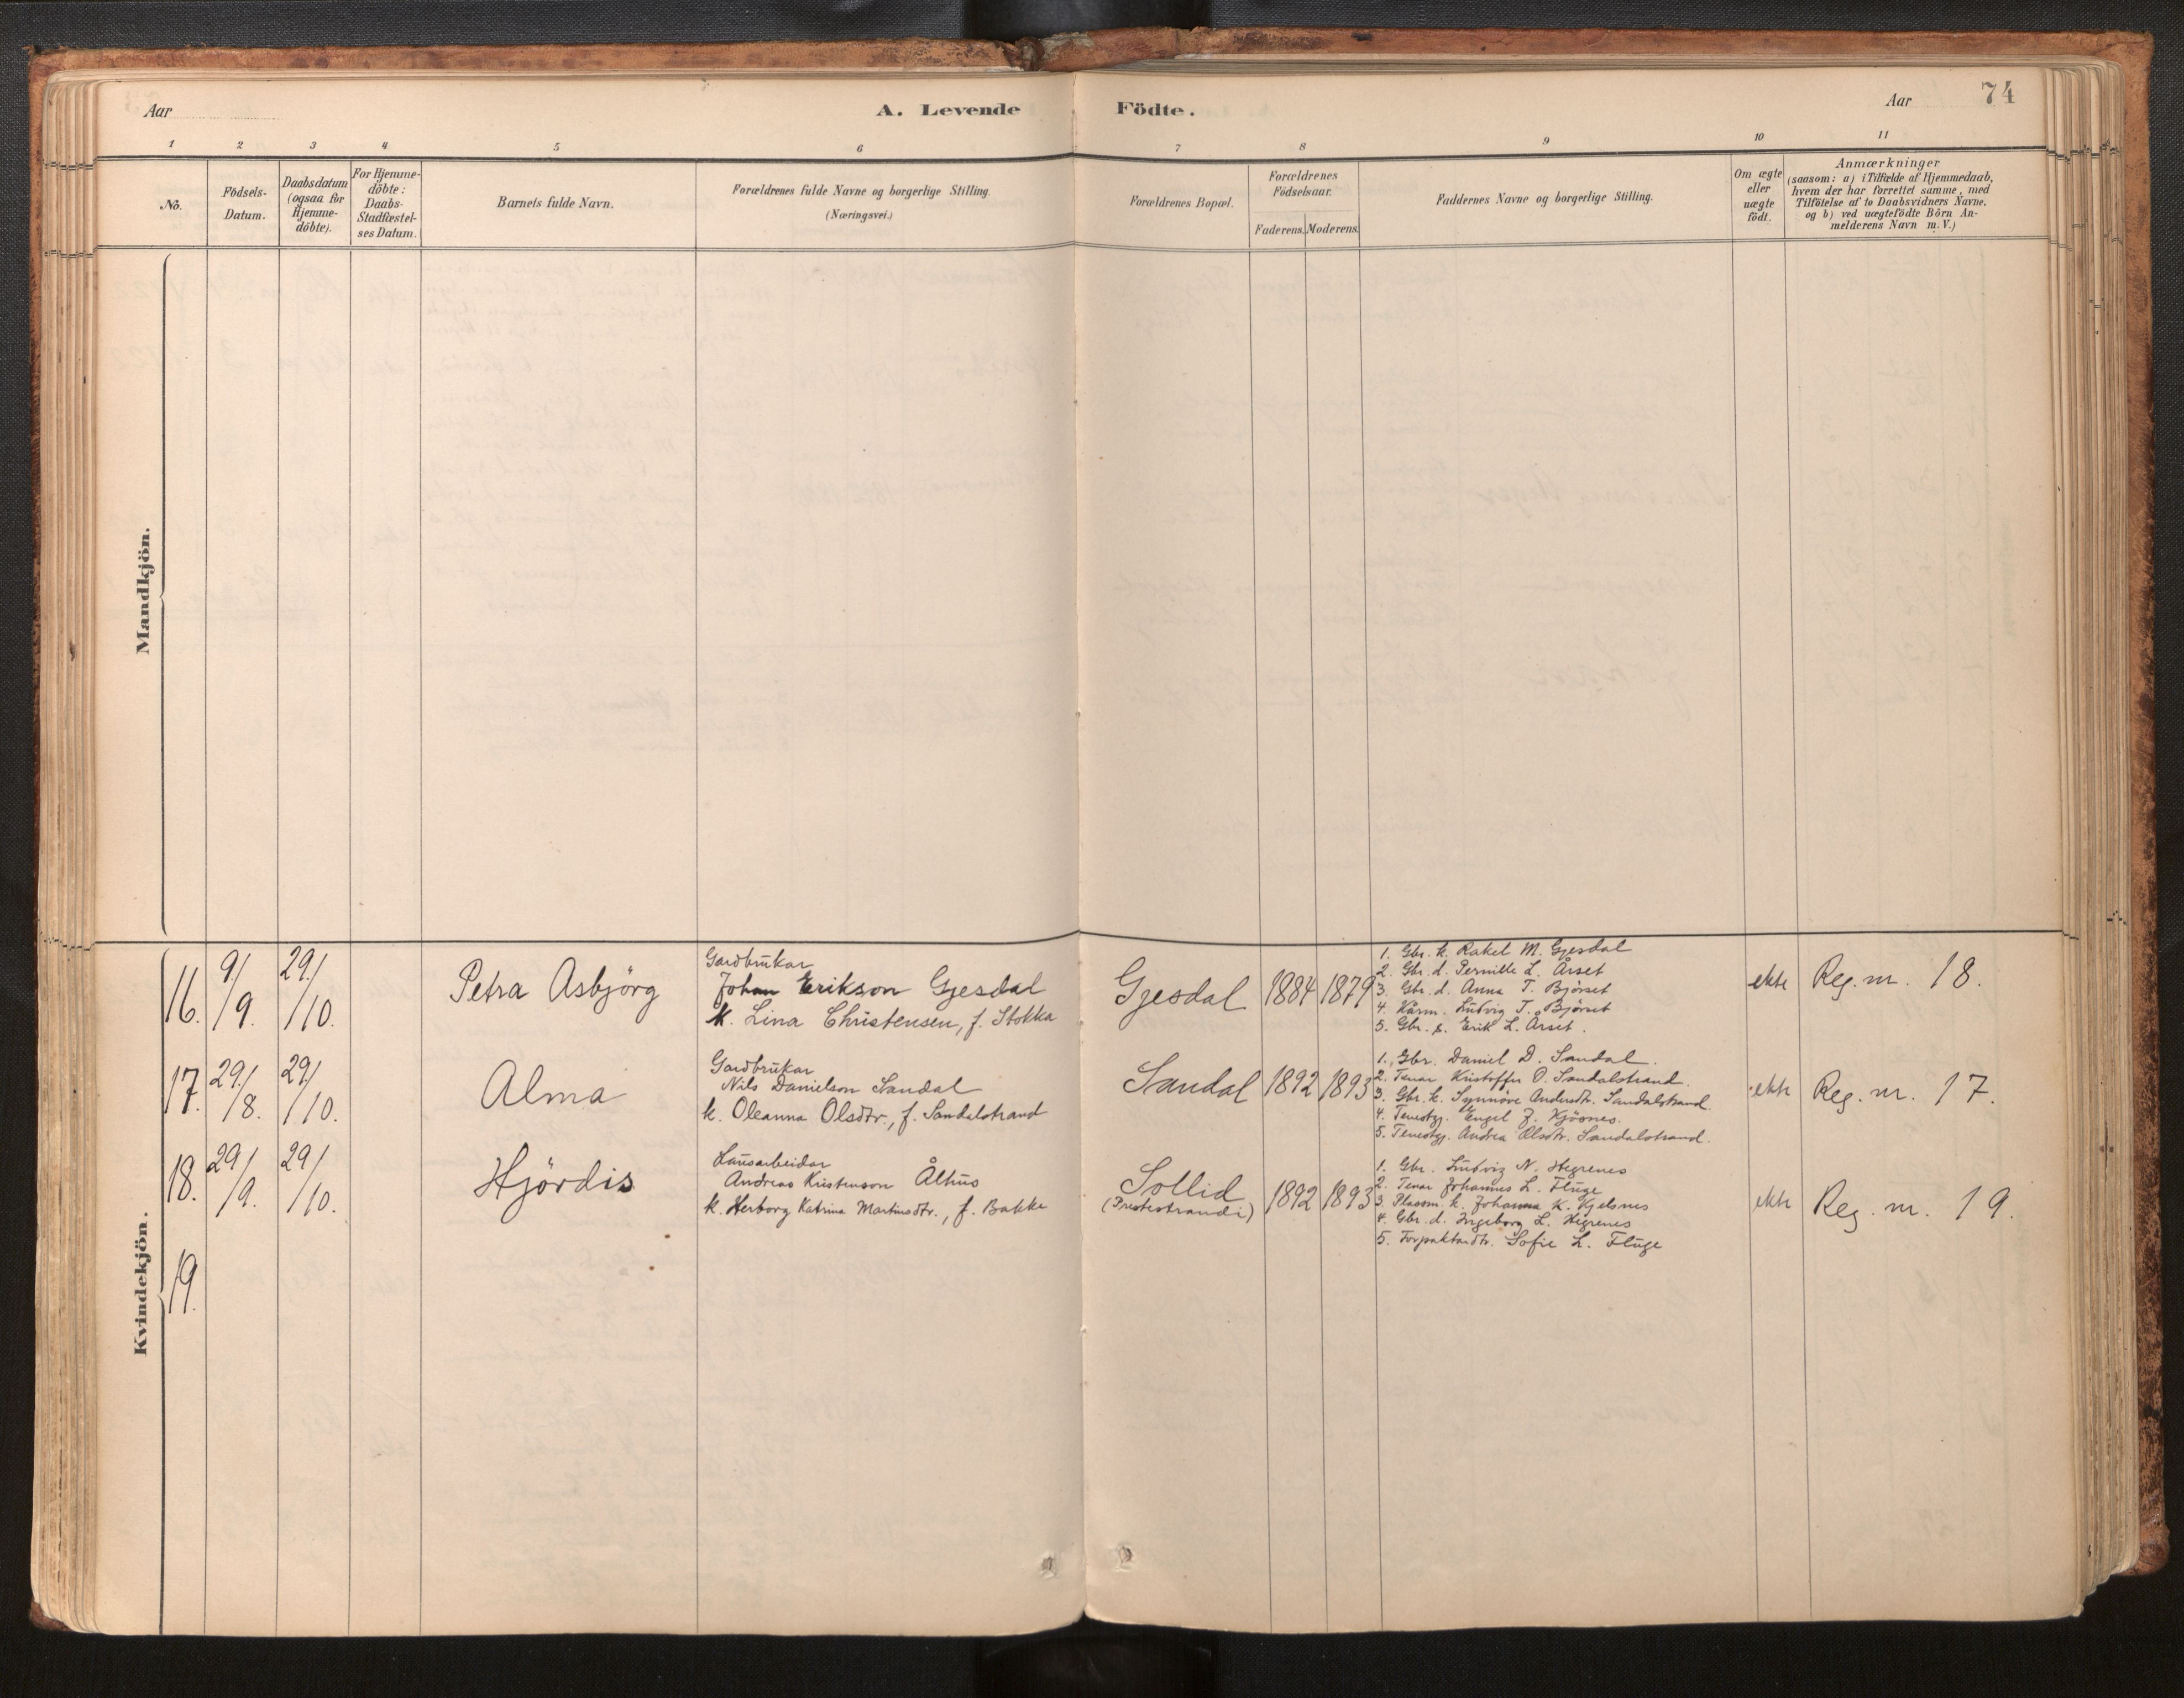 74
Aar
A. Levende Födte.
Aar
1 2 3 4 5 6 7 8 9 10 11
No.
Födsels-Datum.
Daabsdatum (ogsaa for Hjemme-döbte).
For Hjemme-döbte: Daabs-Stadfæstel-ses Datum.
Barnets fulde Navn.
Forældrenes fulde Navne og borgerlige Stilling.
(Næringsvei.)
Forældrenes Bopæl.
Forældrenes Födselsaar.
Faderens. Moderens.
Faddernes Navne og borgerlige Stilling.
Om ægte eller uægte födt.
Anmærkninger
(saasom: a) i Tilfælde af Hjemmedaab,
hvem der har forrettet samme, med
Tilföielse af to Daabsvidners Navne,
og b) ved uægtefödte Börn An-
melderens Navn m. V.)
Mandkjön.
Kvindekjön.
16. 9/9. 29/10. Petra Asbjörg
Gardbrukar
Johan Erikson Gjesdal
k. Lina Christensen, f. Stokka
Gjesdal 1884 1879
1. Gbr. k. Rakel M. Gjesdal
2. Gbr. d. Pernille L. Årset
3. Gbr. d. Anna T. Bjørset
4. Kårm. Ludvig T. Bjørset
5. Gbr. s. Erik L. Årset.
ekte Reg. nr. 18.
17. 29/8. 29/10. Alma
Gardbrukar
Nils Danielson Sandal
k. Oleanna Olsdtr., f. Sandalstrand
Sandal 1892 1893
1. Gbr. Daniel D. Sandal.
2. Tenar Kristoffer O. Sandalstrand.
3. Gbr. k. Synnöve Andersdtr. Sandalstrand.
4. Tenestgj. Engel J. Kjösnes.
5. Tenestgj. Andrea Olsdtr. Sandalstrand.
ekte Reg. nr. 17.
18. 29/9. 29/10. Hjördis
Lausarbeidar
Andreas Kristenson Ålhus
k. Herborg Katrina Martinsdtr., f. Bakke
Sollid
(Prestestrandi) 1892 1893
1. Gbr. Ludvig N. Hegrenes
2. Tenar Johannes L. Fluge
3. Plassm. k. Johanna K. Kjelsnes
4. Gbr. d. Ingeborg L. Hegrenes
5. Forpaktardtr. Sofie L. Fluge
ekte Reg. nr. 19.
19.